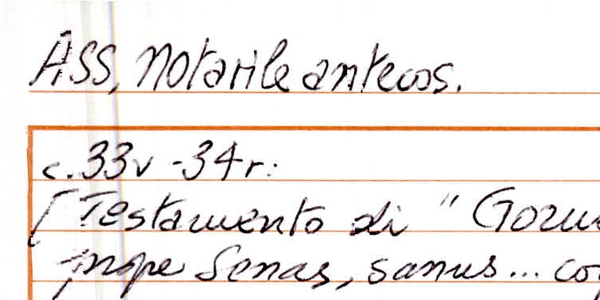 ASS, Notarile antecos.
c. 33v - 34r:
[Testamento di "
prope Senas, sanus...